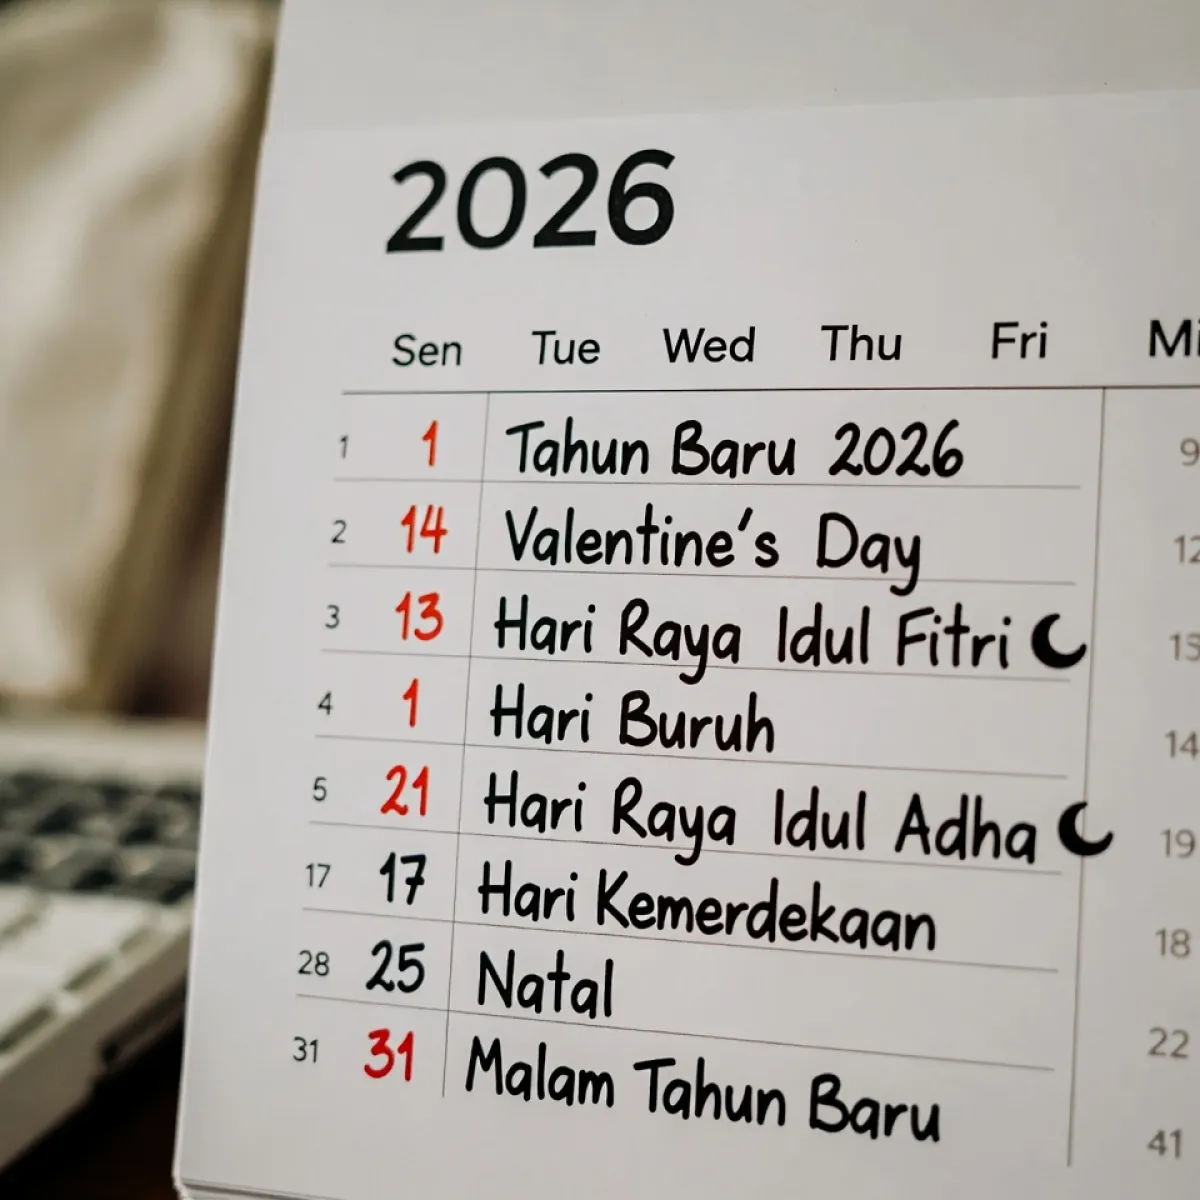 2026
Sen Tue Wed Thu Fri
1 1 Tahun Baru 2026
2 14 Valentine's Day
3 13 Hari Raya Idul Fitri
4 1 Hari Buruh 14
5 21 Hari Raya Idul Adha 19
17 17 Hari Kemerdekaan 18
28 25 Natal 22
31 31 Malam Tahun Baru 41